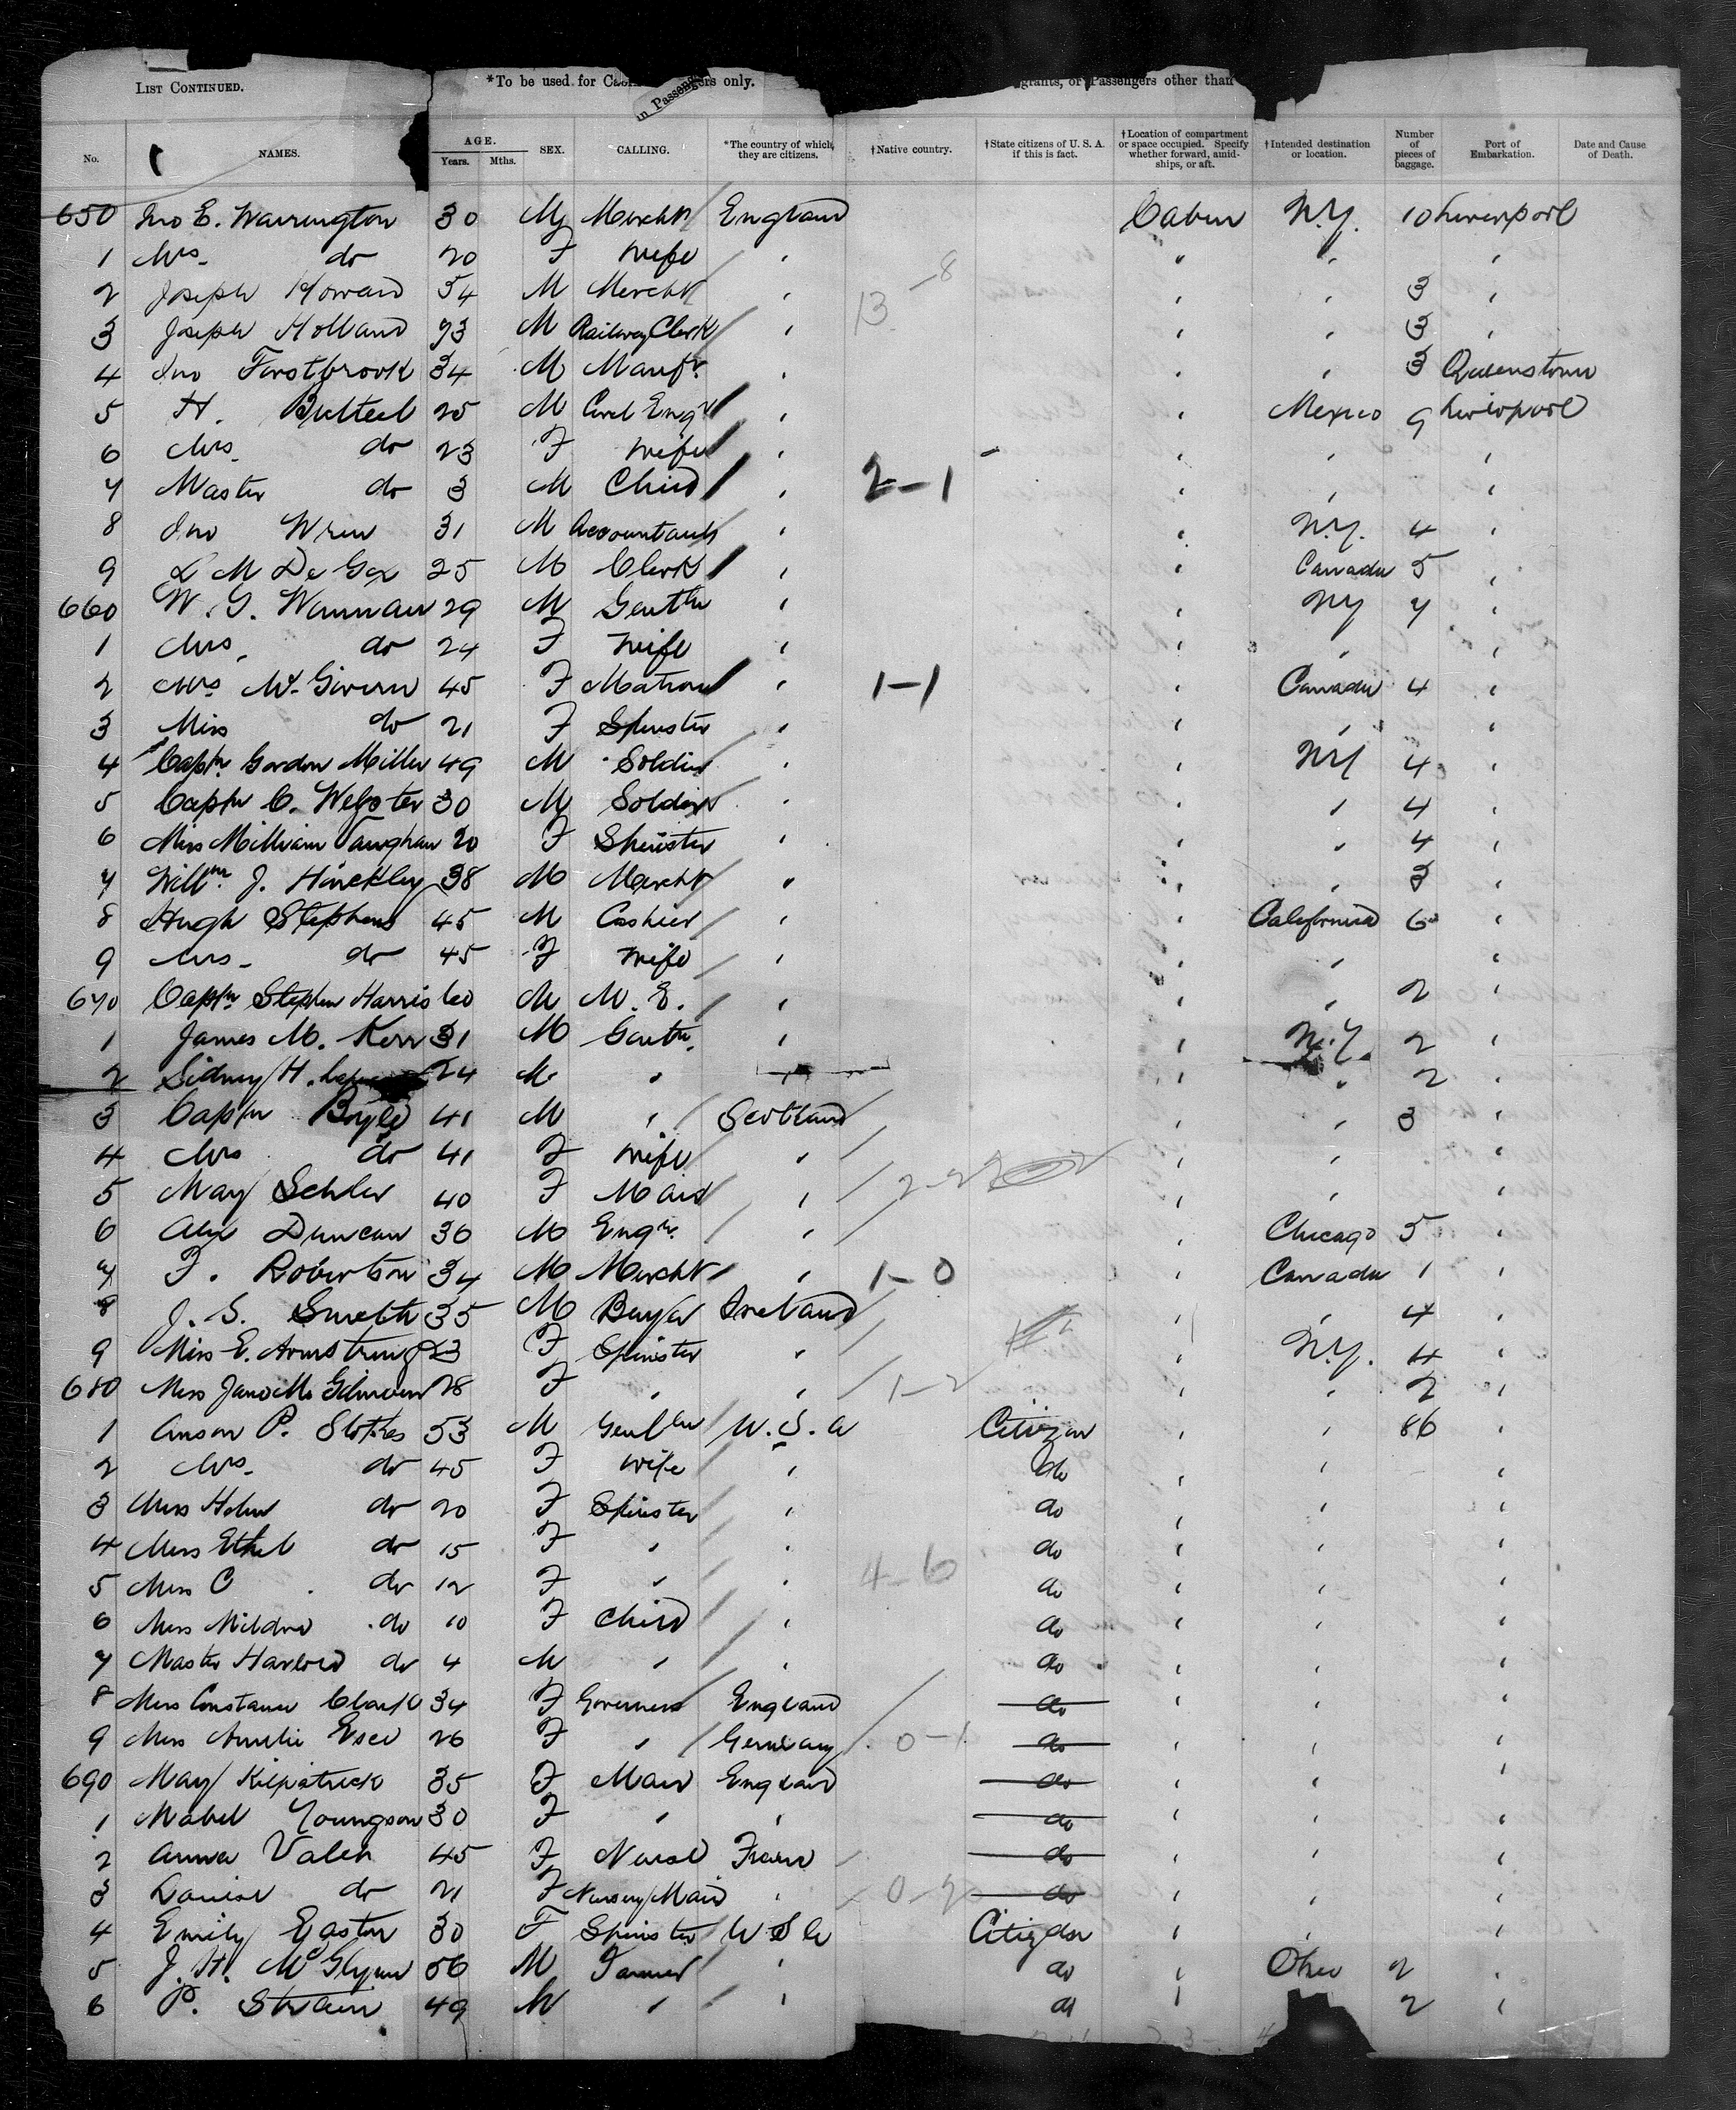 LIST CONTINUED.
*To be used for Cabin Passengers only.
in Passeng
grants, or Passengers other than
No. NAMES. AGE. Years. Mths. SEX. CALLING. *The country of which they are citizens. †Native country. †State citizens of U. S. A. if this is fact. †Location of compartment or space occupied. Specify whether forward, amidships, or aft. †Intended destination or location. Number of pieces of baggage. Port of Embarkation. Date and Cause of Death.
650 Jno E. Warrington 30 M Mercht England Cabin N.Y. 10 Liverpool
1 Mrs. do 20 F Wife " " " "
2 Joseph Howard 34 M Mercht " 13 - 8 " " 3 "
3 Joseph Holland 73 M Railway Clerk " " " 3 "
4 Jno Forstbrook 34 M Manfr. " " " 3 Queenstown
5 H. Bulteel 25 M Civil Engr " " Mexico 9 Liverpool
6 Mrs. do 23 F Wife " " " "
7 Master do 3 M Child " 2-1 " " "
8 Jno Wren 31 M Accountant " " N.Y. 4 "
9 L M De Gex 25 M Clerk " " Canada 5 "
660 W. G. Wenman 29 M Gentln " " NY 7 "
1 Mrs. do 24 F Wife " " " "
2 Mrs McGivern 45 F Matron " 1-1 " Canada 4 "
3 Miss do 21 F Spinster " " " "
4 Captn Gordon Miller 49 M Soldier " " NY 4 "
5 Captn C. Webster 30 M Soldier " " " 4 "
6 Miss Vaughan 20 F Spinster " " " 4 "
7 Willm. J. Hinckley 38 M Mercht " " " 3 "
8 Hugh Stephens 45 M Cashier " " California 6 "
9 Mrs. do 45 F Wife " " " "
670 Captn Stephen Harris 60 M M. E. " " " 2 "
1 James M. Kerr 31 M Gentn. " " N.Y. 2 "
2 Sidney H. 24 M " " " " 2 "
3 Captn Boyle 41 M " Scotland " " 3 "
4 Mrs do 41 F Wife " " " "
5 May 40 F Maid " 2-2 " " "
6 Alex Duncan 36 M Engr. " " Chicago 5 "
7 F. Robertson 34 M Mercht " 1-0 " Canada 1 "
8 J. S. Smeth 35 M Buyer Ireland " " 4 "
9 Miss E. Armstrong 23 F Spinster " " N.Y. 4 "
680 Miss Jane M. 28 F " " 1-2 " " 2 "
1 Anson P. Stokes 53 M Gentln U.S.A Citizen " " 86 "
2 Mrs. do 45 F Wife " do " " "
3 Miss Helen do 20 F Spinster " do " " "
4 Miss Ethel do 15 F " " do " " "
5 Miss C do 12 F " " 4-6 do " " "
6 Miss Mildred do 10 F Child " do " " "
7 Master Harold do 4 M " " do " " "
8 Miss Constance Clark 34 F Governess England do " " "
9 Miss Amelie 26 F " Germany 0-1 do " " "
690 May Kilpatrick 35 F Maid England do " " "
1 Mabel Youngson 30 F " " do " " "
2 Anna Valen 45 F Nurse France do " " "
3 Louise do 21 F Nursery Maid " 0-2 do " " "
4 Emily Easton 30 F Spinster U S A Citizen " " "
5 J. H. McGlynn 56 M Farmer " do " Ohio 2 "
6 P. Strain 49 M " " do " 2 "